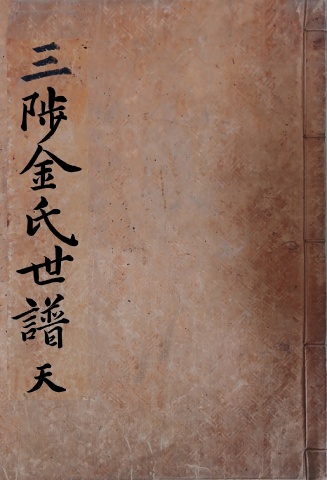 三陟金氏世譜 天